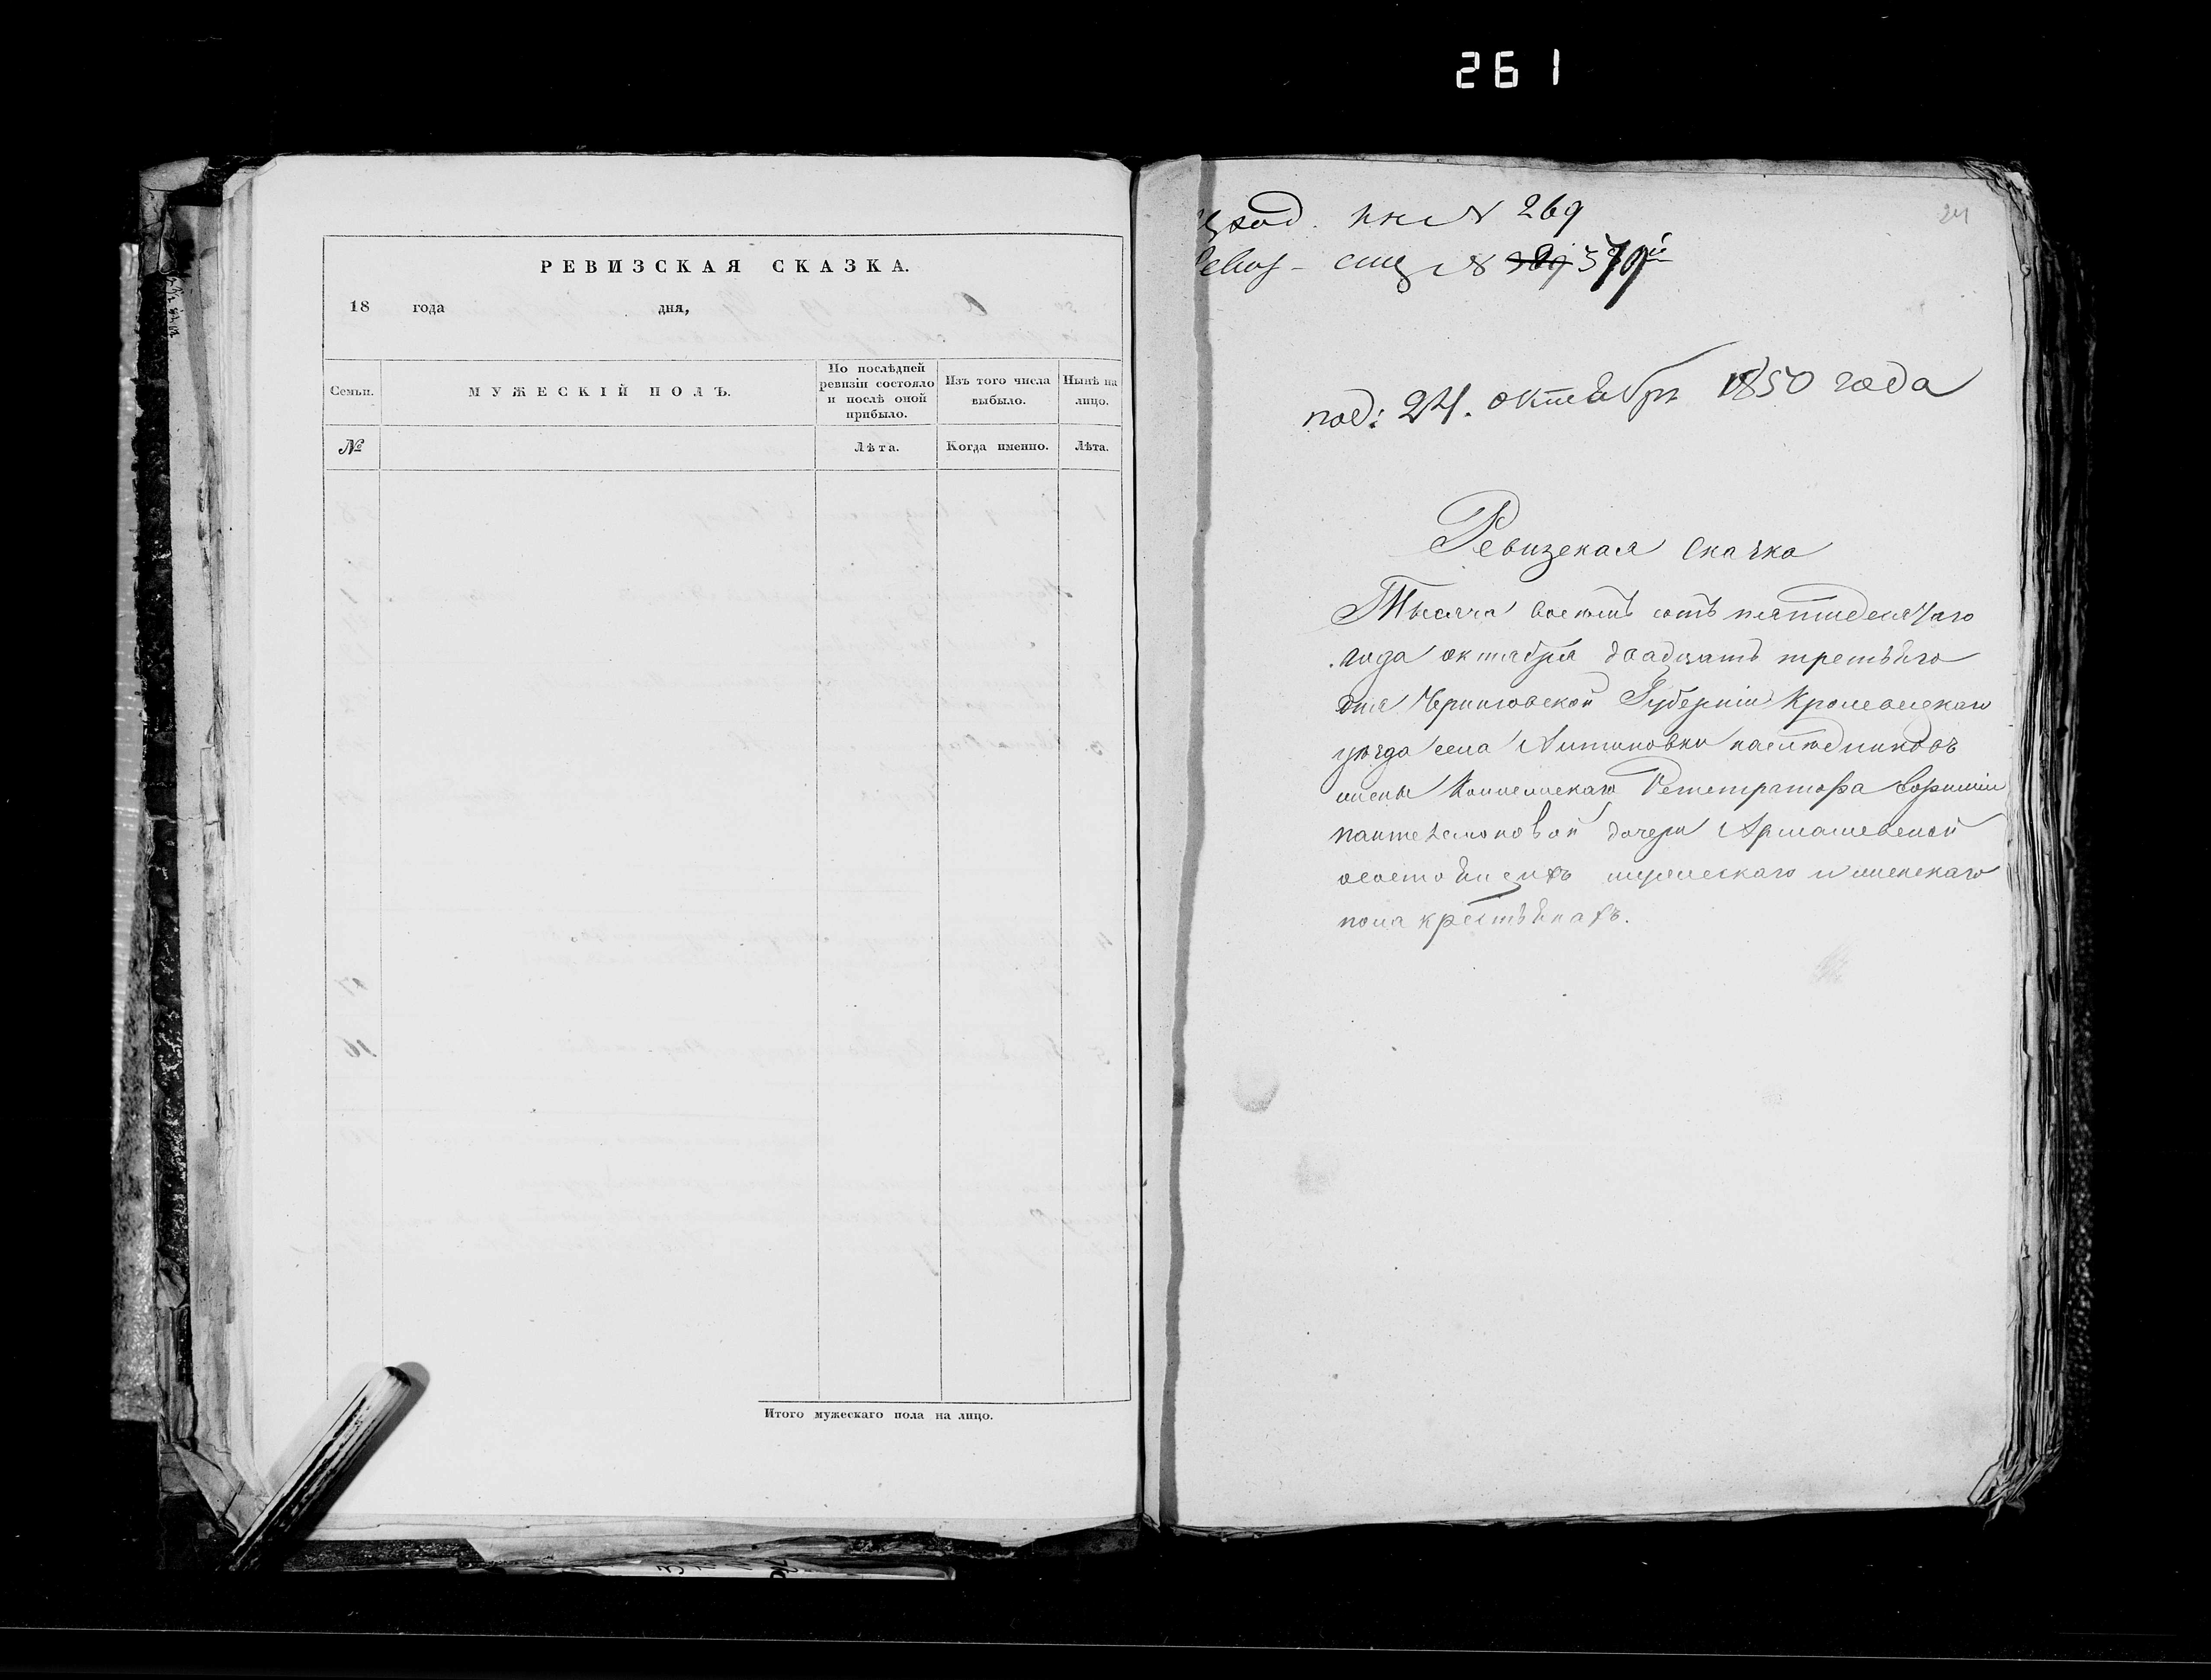 261
РЕВИЗСКАЯ СКАЗКА.
18 года дня,
Семьи.
МУЖЕСКІЙ ПОЛЪ.
По послѣдней
ревизіи состояло
и послѣ оной
прибыло.
Изъ того числа
выбыло.
Нынѣ на
лицо.
№
Лѣта.
Когда именно.
Лѣта.
Итого мужескаго пола на лицо.
24
№ 269
№
под: 24. октября 1850 года
Ревизская Сказка
Тысяча восемь сотъ пятидесятаго
года октября двадцать третьяго
дня Черниговской Губерніи Кролевецкаго
уѣзда села Антоновки наслѣдниковъ
жены Коллежскаго Регистратора
Пантелемоновой дочери Армашевской
о состоящихъ мужескаго и женскаго
пола крестьянахъ.